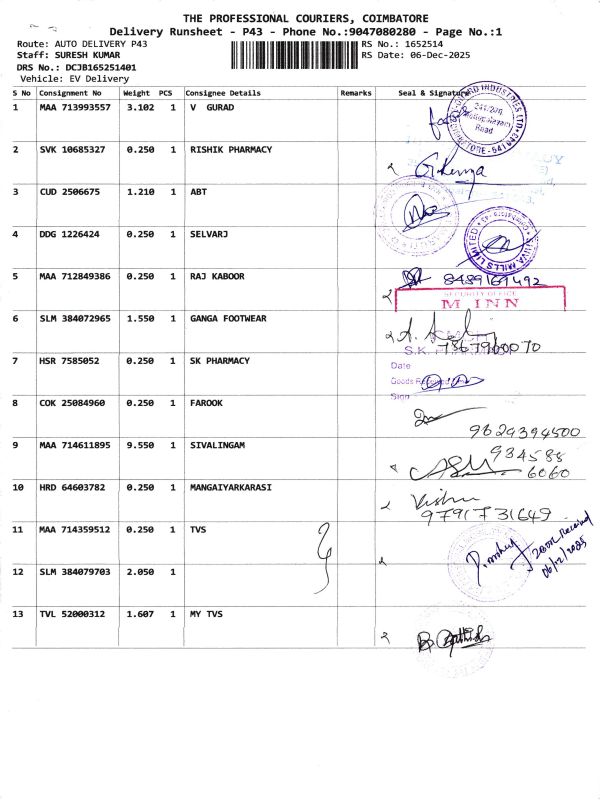 THE PROFESSIONAL COURIERS, COIMBATORE
Delivery Runsheet - P43 - Phone No.:9047080280 - Page No.:1
Route: AUTO DELIVERY P43 RS No.: 1652514
Staff: SURESH KUMAR RS Date: 06-Dec-2025
DRS No.: DCJB165251401
Vehicle: EV Delivery
S No Consignment No Weight PCS Consignee Details Remarks Seal & Signature
1 MAA 713993557 3.102 1 V GURAD
Road
2 SVK 10685327 0.250 1 RISHIK PHARMACY
3 CUD 2506675 1.210 1 ABT
4 DDG 1226424 0.250 1 SELVARJ
5 MAA 712849386 0.250 1 RAJ KABOOR 8489161492
SECURITY OFFICE
M INN
6 SLM 384072965 1.550 1 GANGA FOOTWEAR
7 HSR 7585052 0.250 1 SK PHARMACY
Date
Sign
8 COK 25084960 0.250 1 FAROOK
9629394500
9 MAA 714611895 9.550 1 SIVALINGAM 934588
6060
10 HRD 64603782 0.250 1 MANGAIYARKARASI Vishnu
9791731649
11 MAA 714359512 0.250 1 TVS
Received
06/12/2025
12 SLM 384079703 2.050 1
13 TVL 52000312 1.607 1 MY TVS